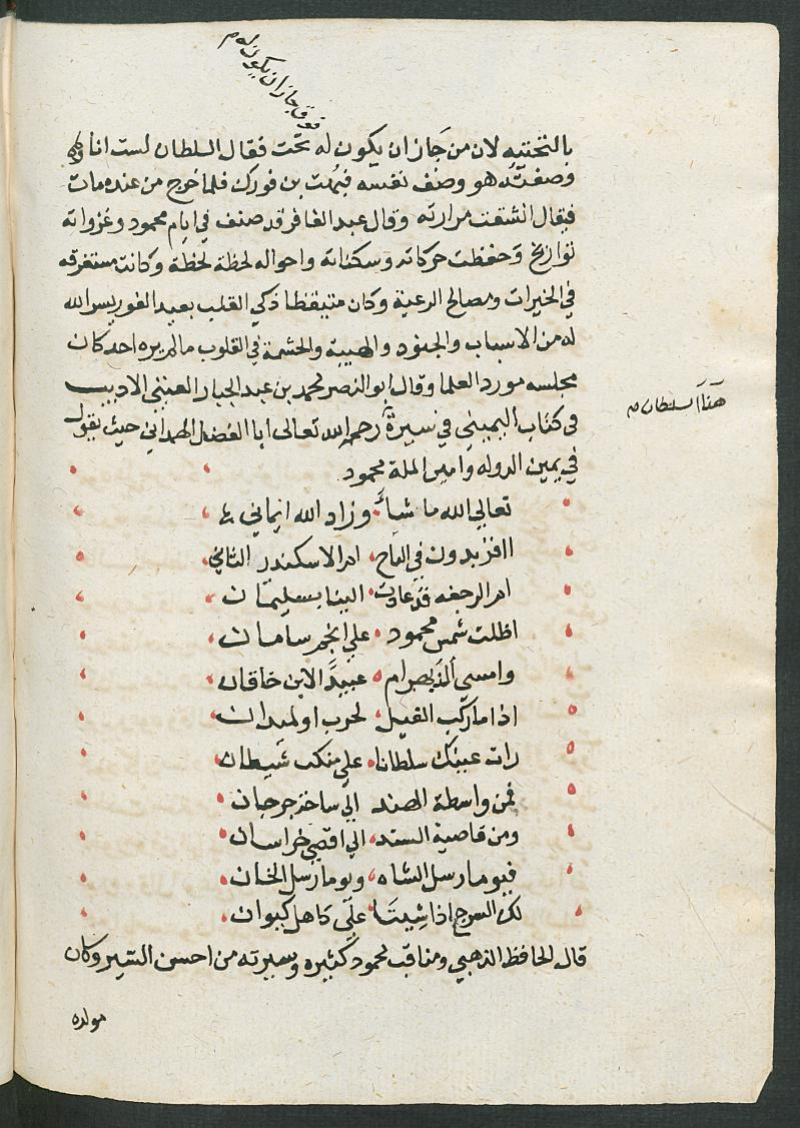 فوق جاز ان يكون له م
بالتحتيه لان من جاز ان يكون له تحت فقال السلطان لست انا
وصفته هو وصف نفسه فبهت بن فورك فلما خرج من عنده مات
فيقال انشقت مرارته وقال عبد الغافر قد صنف في ايام محمود وغزواته
تواريخ وحفظت حركاته وسكناته واحواله لحظة لحظة وكانت مستغرقه
في الخيرات ومصالح الرعية وكان متيقظا ذكي القلب بعيد الغور يسر الله
له من الاسباب والجنود والهيبة والحشمة في القلوب ما لم يره احد كان
مجلسه مورد العلما وقال ابو النصر محمد بن عبد الجبار العتبي الاديب
هذا السلطان م
في كتاب اليميني في سيرة رحم الله تعالى ابا الفضل الهمداني حيث يقول
في يمين الدوله وامين الملة محمود
تعالي الله ما شاء وزاد الله ايماني
اافزيدون في التاج ام الاسكندر الثاني
ام الرجعه قد عادت الينا بسليمان
اظلت شمس محمود علي انجم سامان
وامسي ال بهرام عبيدا لابن خاقان
اذا ما ركب الفيل لحرب او لميدان
رات عينك سلطانا علي منكب شيطان
فمن واسطة الهند الي ساحة جرجان
ومن قاصية السند الي اقصي خراسان
فيوما رسل الشاه ويوما رسل الخان
لك السرج اذا شيت علي كاهل كيوان
قال الحافظ الذهبي ومناقب محمود كثيره وسيرته من احسن السير وكان
مولده